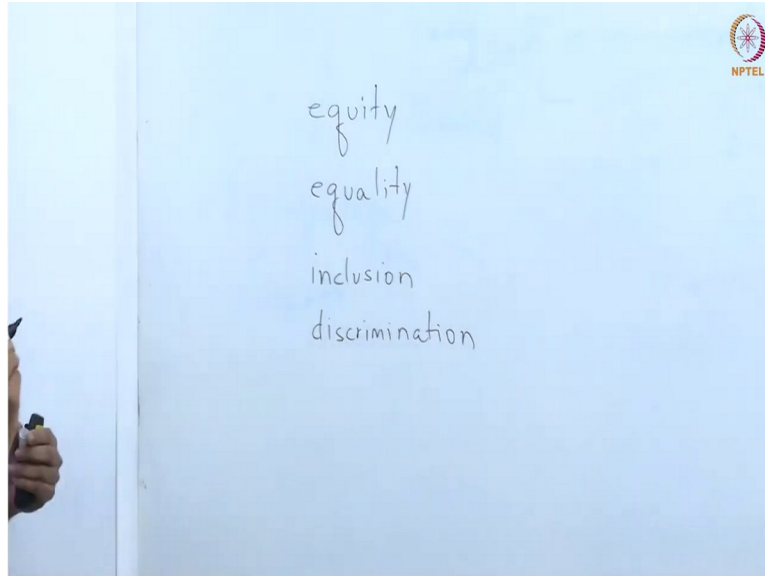 NPTEL
equity
equality
inclusion
discrimination